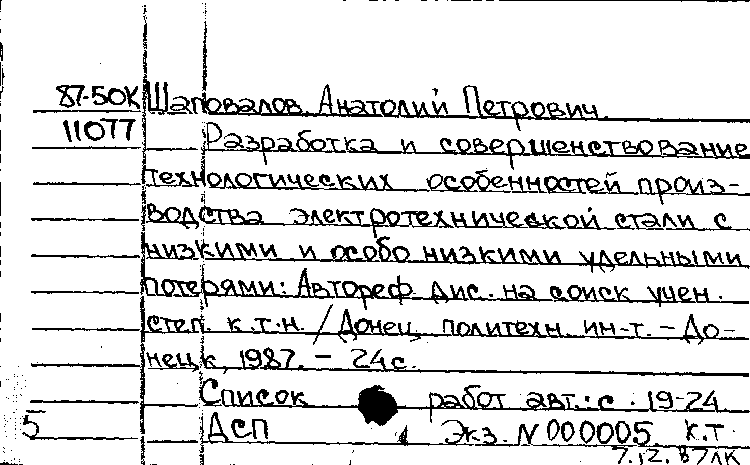 87-50К Шаповалов Анатолий Петрович.
11077 Разработка и совершенствование
технологических особенностей произ-
водства электротехнической стали с
низкими и особо низкими удельными
потерями: Автореф дис. на соиск учен.
степ. к.т.н. / Донец. политехн. ин-т. – До-
нецк, 1987. – 24с.
Список работ авт.: с. 19-24
5 ДСП Экз. N 000005 к.т.
7.12.87ЛК